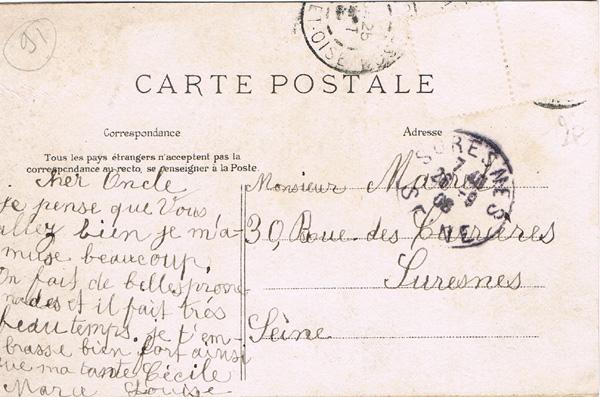 91
ET-OISE
25
CARTE POSTALE
Correspondance
Adresse
Tous les pays étrangers n'acceptent pas la
correspondance au recto, se renseigner à la Poste.
SURESNES
7
26 -9
06
SEINE
Cher Oncle
je pense que Vous
allez bien je m'a-
muse beaucoup,
On fait de belles prome
nades et il fait très
beau temps. je t'em-
brasse bien fort ainsi
que ma tante Cécile
Marie Louise
Monsieur
30, Rue des Carrières
Suresnes
Seine